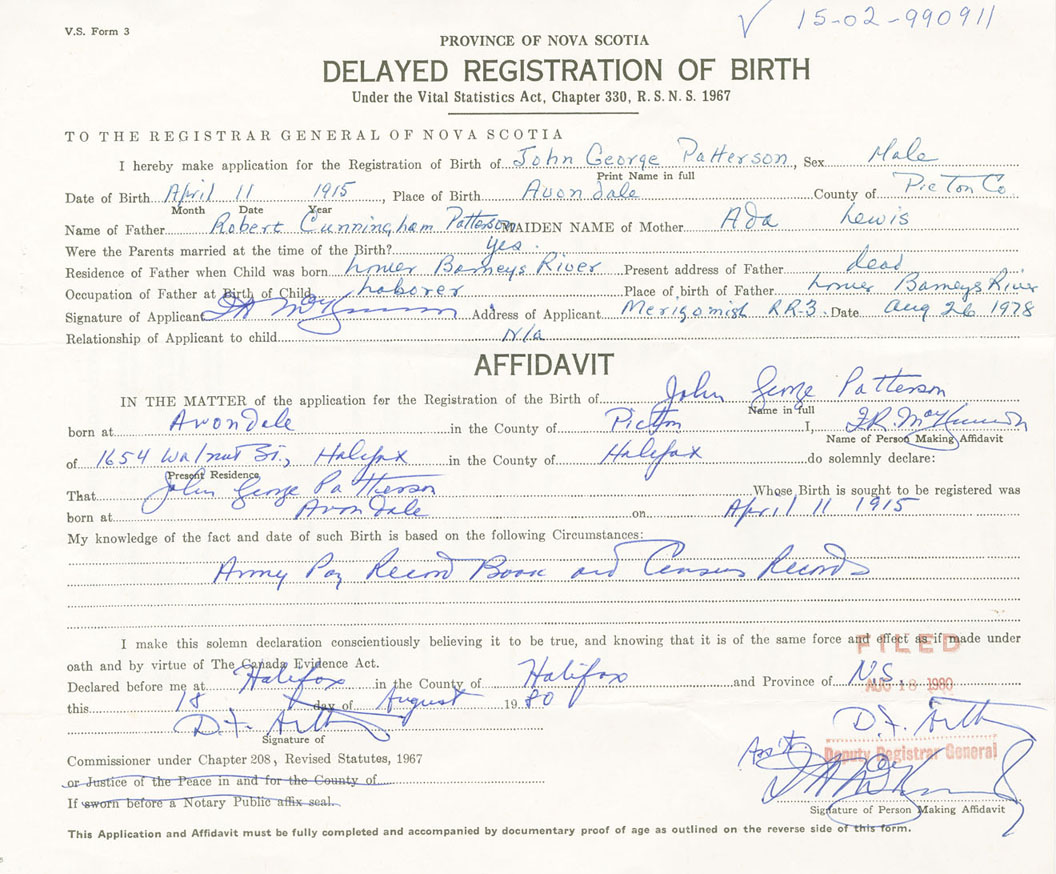 V.S. Form 3
✓ 15-02-990911
PROVINCE OF NOVA SCOTIA
DELAYED REGISTRATION OF BIRTH
Under the Vital Statistics Act, Chapter 330, R.S.N.S. 1967
TO THE REGISTRAR GENERAL OF NOVA SCOTIA
I hereby make application for the Registration of Birth of John George Patterson, Sex Male
Print Name in full
Date of Birth April 11 1915, Place of Birth Avondale County of Picton Co.
Month Date Year
Name of Father Robert Cunningham Patterson MAIDEN NAME of Mother Ada Lewis
Were the Parents married at the time of the Birth? yes.
Residence of Father when Child was born Lower Barneys River Present address of Father dead
Occupation of Father at Birth of Child Laborer Place of birth of Father Lower Barneys River
Signature of Applicant Address of Applicant Merigomish RR-3. Date Aug 26 1978
Relationship of Applicant to child N/a
AFFIDAVIT
IN THE MATTER of the application for the Registration of the Birth of John George Patterson
Name in full
born at Avondale in the County of Picton I, F.R.
Name of Person Making Affidavit
of 1654 Walnut St., Halifax in the County of Halifax do solemnly declare:
Present Residence
That John George Patterson Whose Birth is sought to be registered was
born at Avondale on April 11 1915
My knowledge of the fact and date of such Birth is based on the following Circumstances:
Army Pay Record Book and Census Records
I make this solemn declaration conscientiously believing it to be true, and knowing that it is of the same force and effect as if made under
oath and by virtue of The Canada Evidence Act.
FILED
Declared before me at Halifax in the County of Halifax and Province of N.S.
AUG 18 1980
this 18 day of August 19 80
D.F. Arth
D.F. Arth
Signature of
Asst.
Deputy Registrar General
Commissioner under Chapter 208, Revised Statutes, 1967
or Justice of the Peace in and for the County of
If sworn before a Notary Public affix seal.
Signature of Person Making Affidavit
This Application and Affidavit must be fully completed and accompanied by documentary proof of age as outlined on the reverse side of this form.